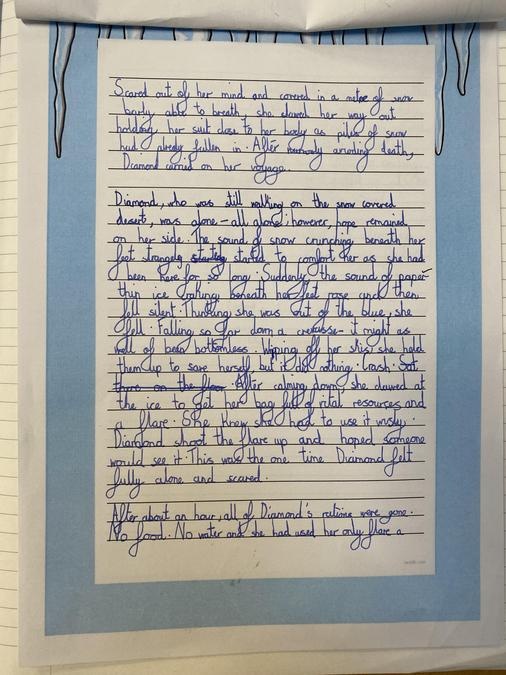 Scared out of her mind and covered in a metre of snow
barly able to breath, she clawed her way out
holding her suit close to her body as piles of snow
had alredy fallen in. After narrowly avoiding death,
Diamond carried on her voyage.
Diamond, who was still walking on the snow covered
desert, was alone - all alone; however, hope remained
on her side. The sound of snow crunching beneath her
feet strangely started to comfort her as she had
been here for so long. Suddenly the sound of paper-
thin ice craking beneath her feet rose and then
fell silent. Thinking she was out of the blue, she
fell. Falling so far down a crevasse- it might as
well of been bottomless. Wipping off her skis, she held
them up to save herself but it did nothing. Crash. Sat
there on the floor After calming down, she clawed at
the ice to get her bag full of vital resources and
a flare. She knew she had to use it wisly.
Diamond shoot the flare up and hoped someone
would see it. This was the one time Diamond felt
fully alone and scared.
After about an hour, all of Diamond's were gone.
No food. No water and she had used her only flare a